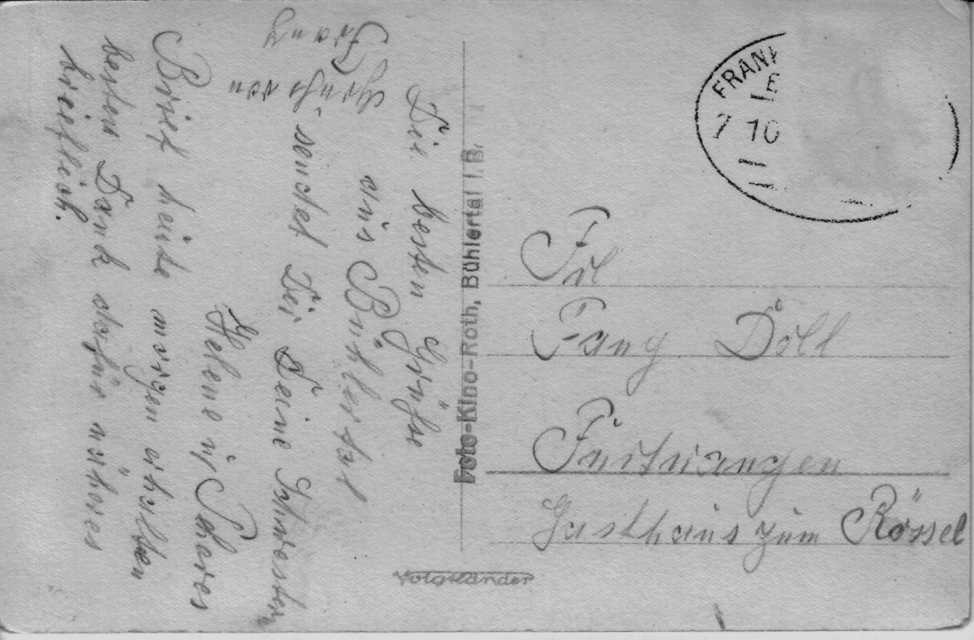 Die besten Grüße
aus Bühlertal
sendet Dir Deine Schwester
Helene u.
Brief heute morgen erhalten
besten Dank dafür näheres
brieflich.
Gruß von
Franz
Foto-Kino-Roth, Bühlertal i. B.
Voigtländer
FRANK
7 10
Frl
Fany Döll
Furtwangen
Gasthaus zum Rössel